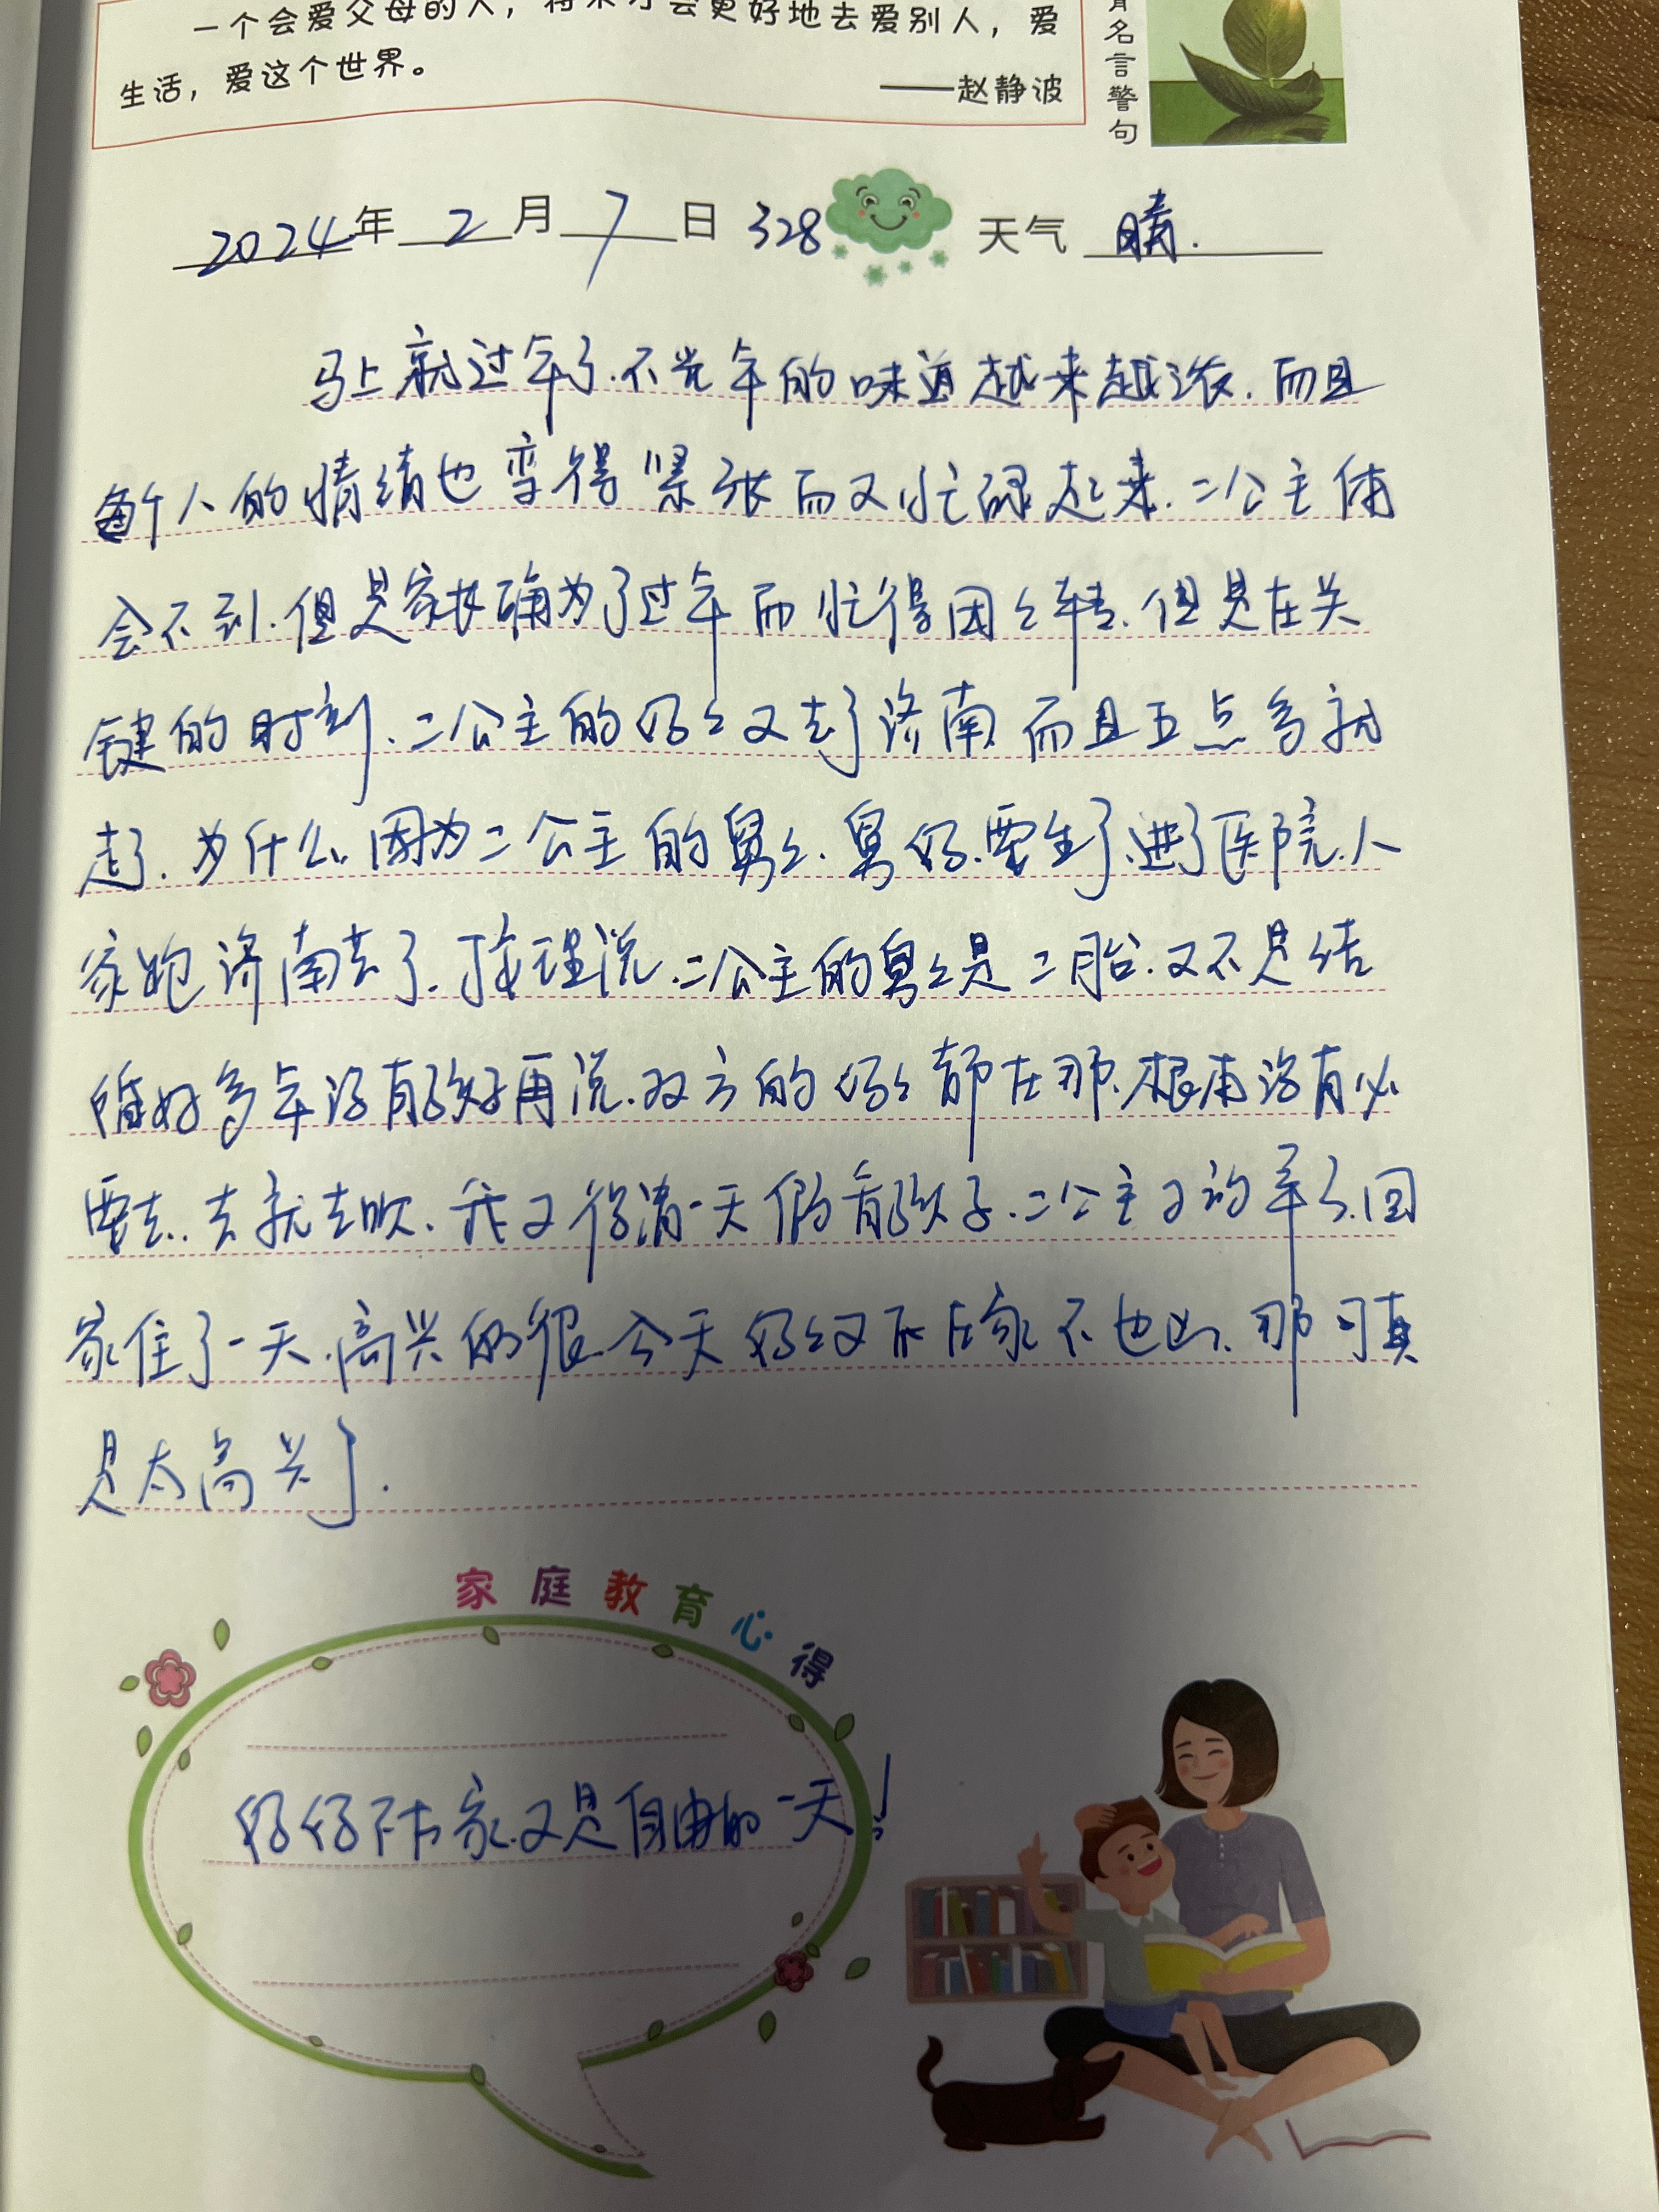 一个会爱父母的人，将来才会更好地去爱别人，爱
生活，爱这个世界。
——赵静波
名言警句
2024年2月7日 328 天气 晴.
马上就过年了.不光年的味道越来越浓.而且
每个人的情绪也变得紧张而又忙碌起来.二公主体
会不到.但是家长确为了过年而忙得团々转.但是在关
键的时刻.二公主的奶々又去了济南而且五点多就
走了.为什么.因为二公主的舅々.舅妈.要生了.进了医院.人
家跑济南去了.按理说.二公主的舅々是二胎.又不是结
婚好多年没有孩子再说.双方的妈々都在那.根本没有必
要去..去就去吹.我又得清一天的看孩子.二公主又的
家住了一天.高兴的很.今天奶々又不在家不也.那可真
是太高兴了.
家庭教育心得
奶奶不在家.又是自由的一天!